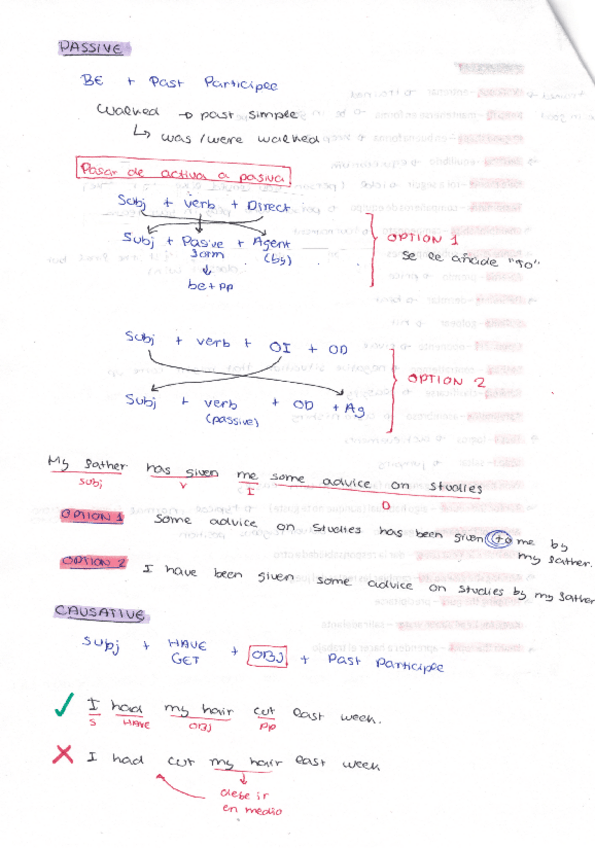 PASSIVE
BE + Past Participle
Walked → past simple
↳ was/were walked
Pasar de activa a pasiva
Subj + verb + Direct
Subj + Pasive form + Agent (by)
↓
be + pp
OPTION 1
se le añade "to"
Subj + verb + OI + OD
Subj + verb (passive) + OD + Ag
OPTION 2
My father has given me some advice on studies
subj V I D
OPTION 1 Some advice on studies has been given to me by my father.
OPTION 2 I have been given some advice on studies by my father
CAUSATIVE
Subj + HAVE GET + OBJ + Past Participle
✓ I had my hair cut last week.
S HAVE OBJ PP
✗ I had cut my hair last week
debe ir
en medio